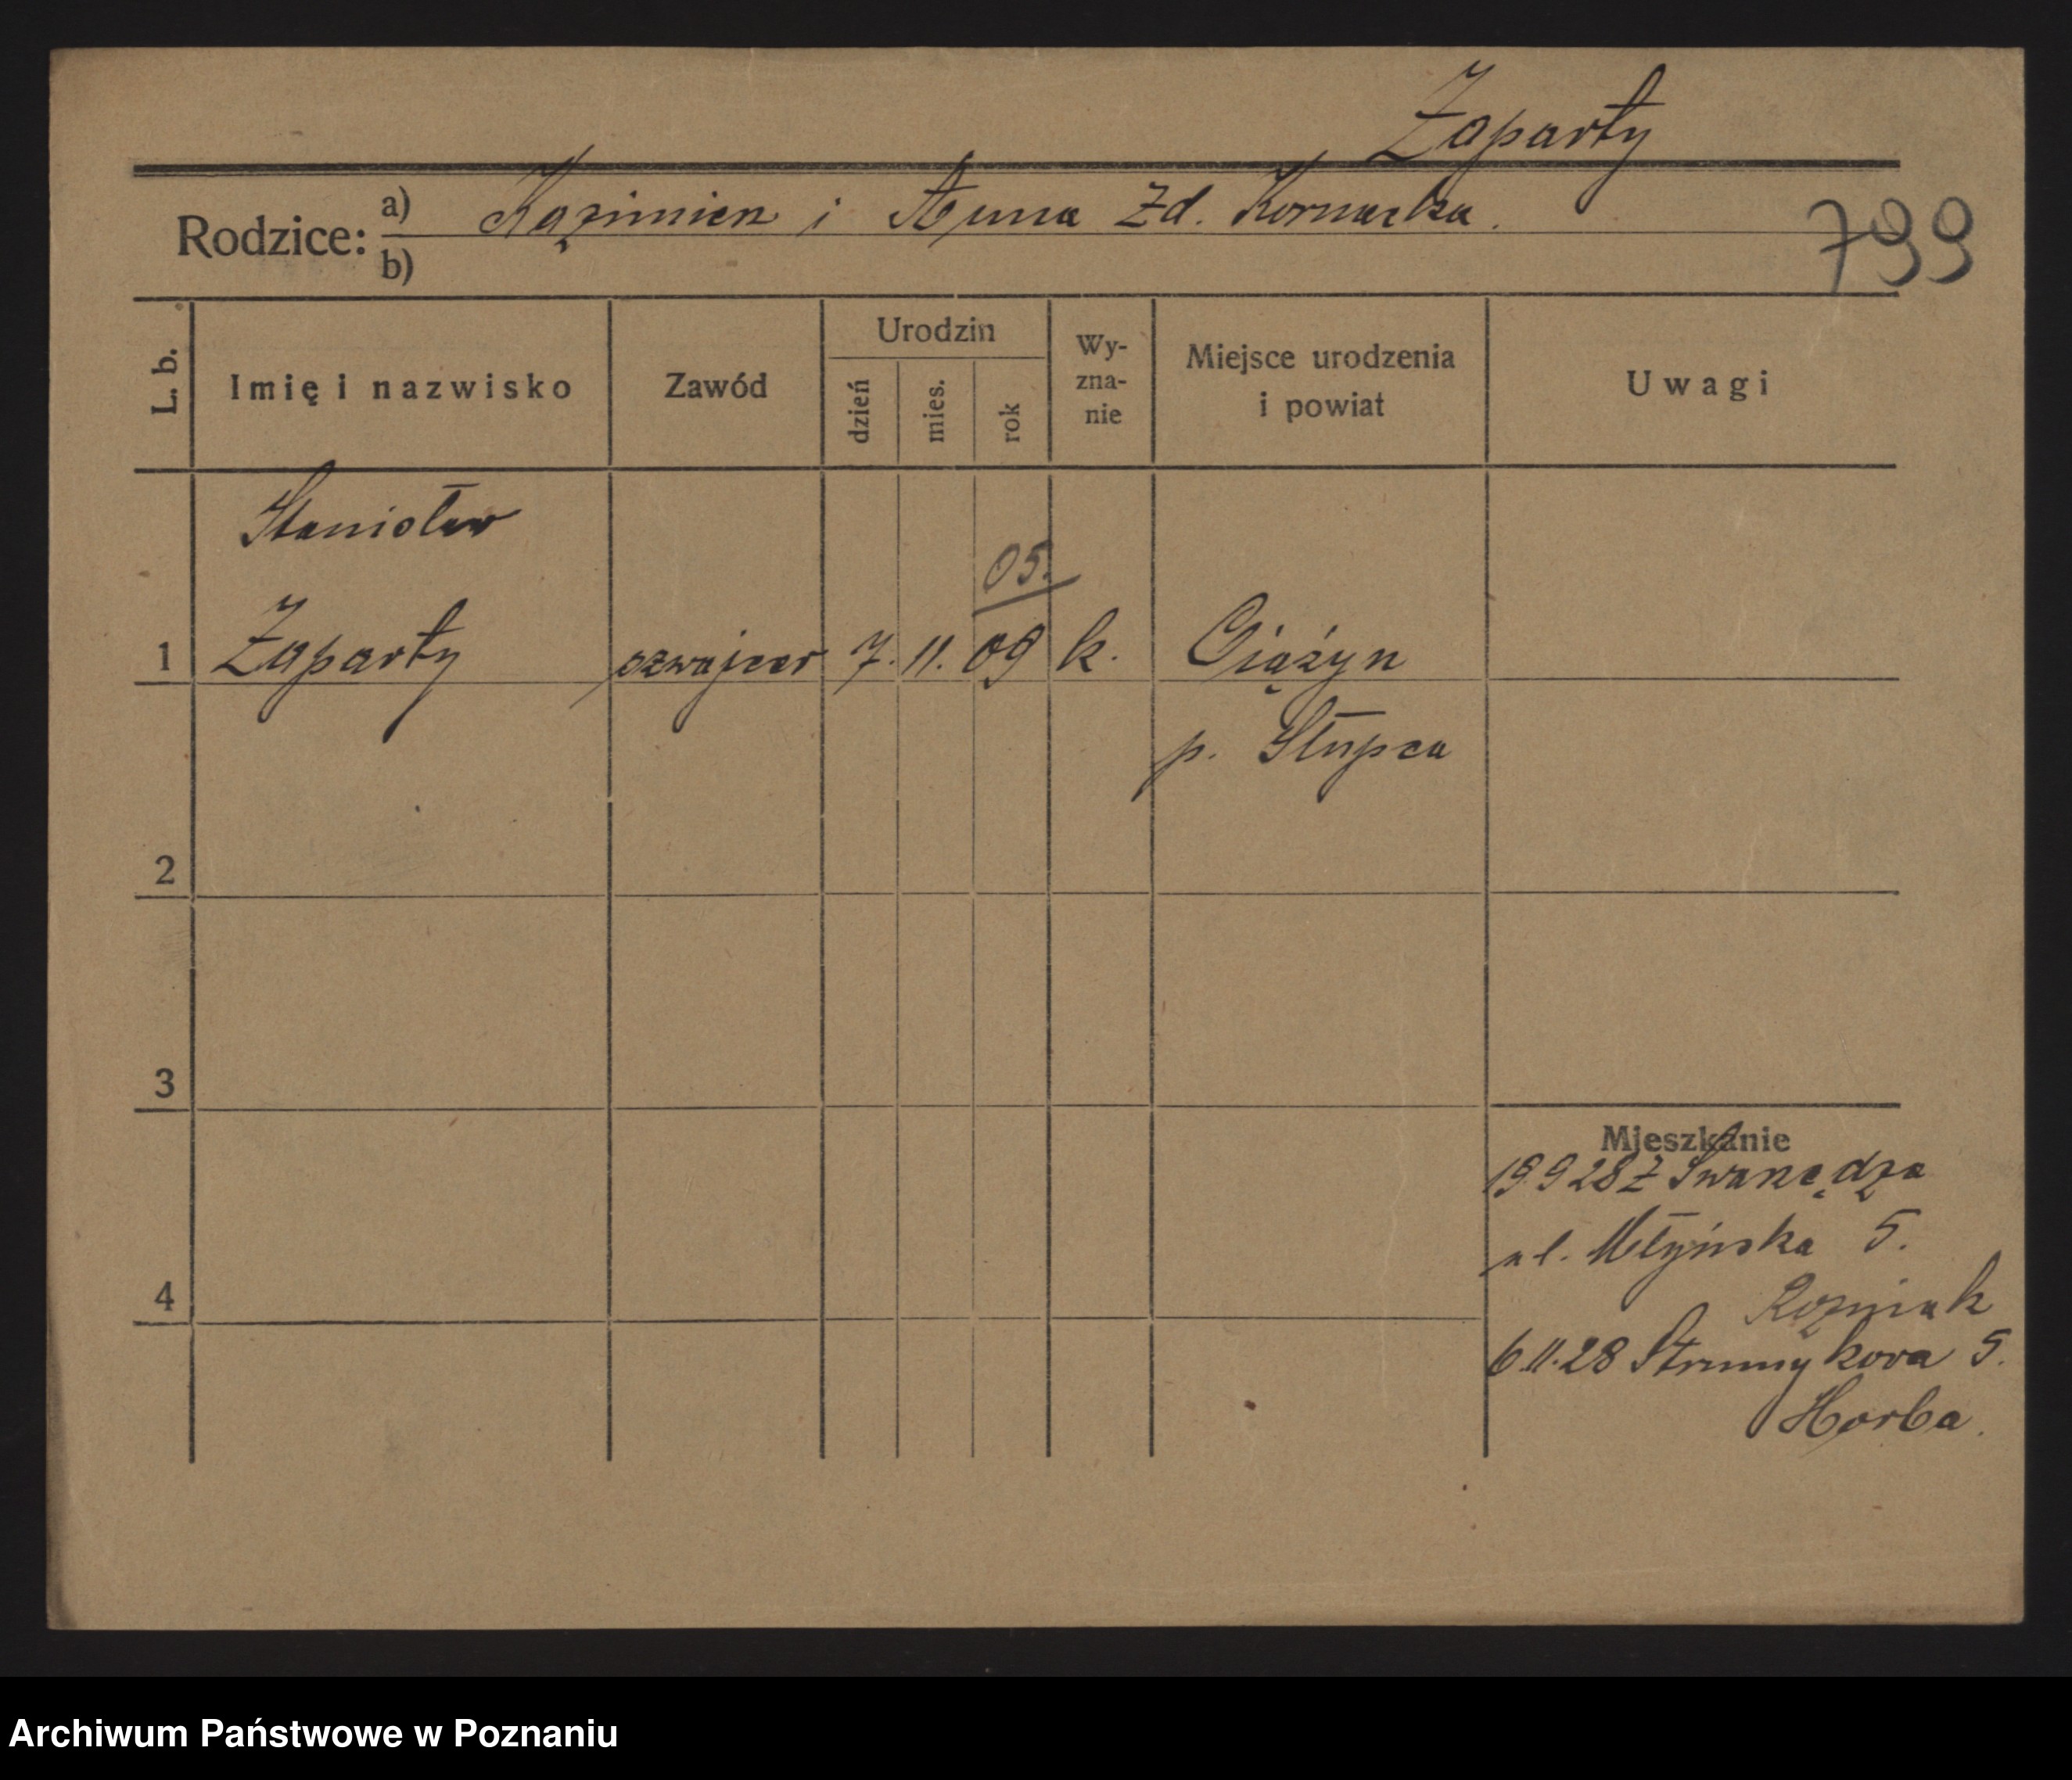 Zaparty
Rodzice: a) Kazimierz i Anna zd. Kornacka.
b)
799
L. b.
Imię i nazwisko
Zawód
Urodzin
dzień
mies.
rok
Wy-
zna-
nie
Miejsce urodzenia
i powiat
Uwagi
Stanisław
05.
1 Zaparty szwajcer 7. 11. 09 k. Ciążyn
p. Słupca
2
3
4
Mieszkanie
19 9 28 z Swarzędza
ul. Młyńska 5.
Rozmiak
6.11.28 Strumykowa 5.
Horba.
Archiwum Państwowe w Poznaniu